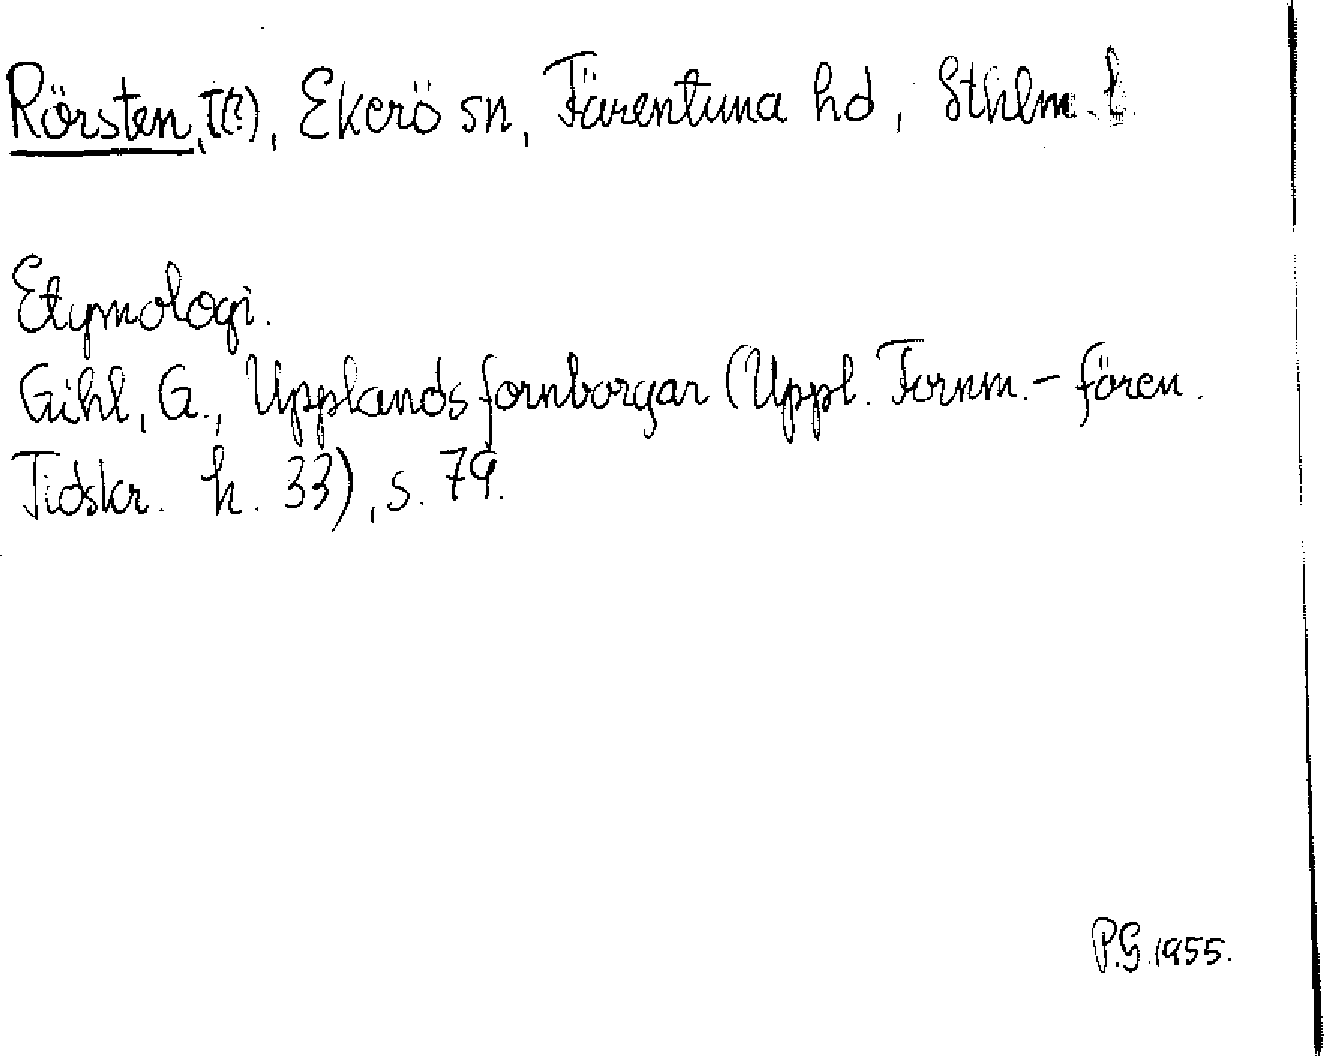 Rörsten, I(?), Ekerö sn, Färentuna hd, Sthlm. l.
Etymologi.
Gihl, G., Upplands fornborgar (Uppl. Fornm.-fören.
Tidskr. h. 33), s. 79.
P.G. 1955.